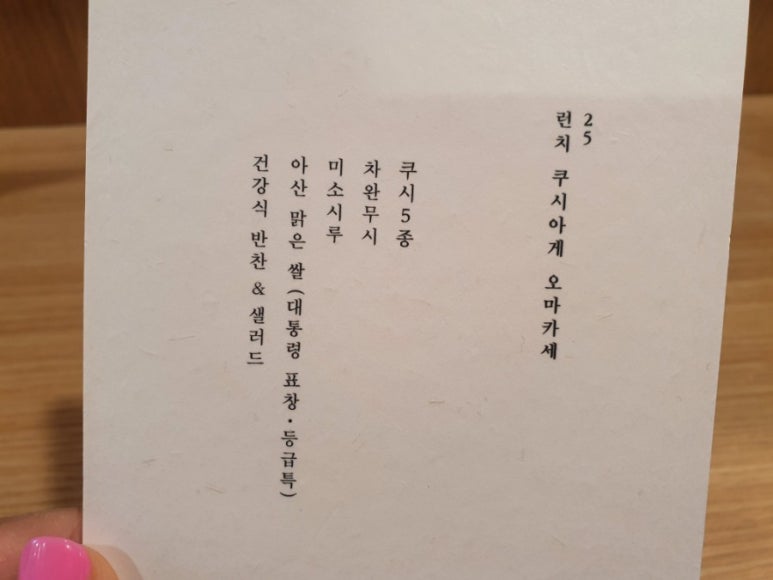 25
런치 쿠시아게 오마카세
쿠시5종
차완무시
미소시루
아산 맑은 쌀(대통령 표창·등급특)
건강식 반찬 & 샐러드